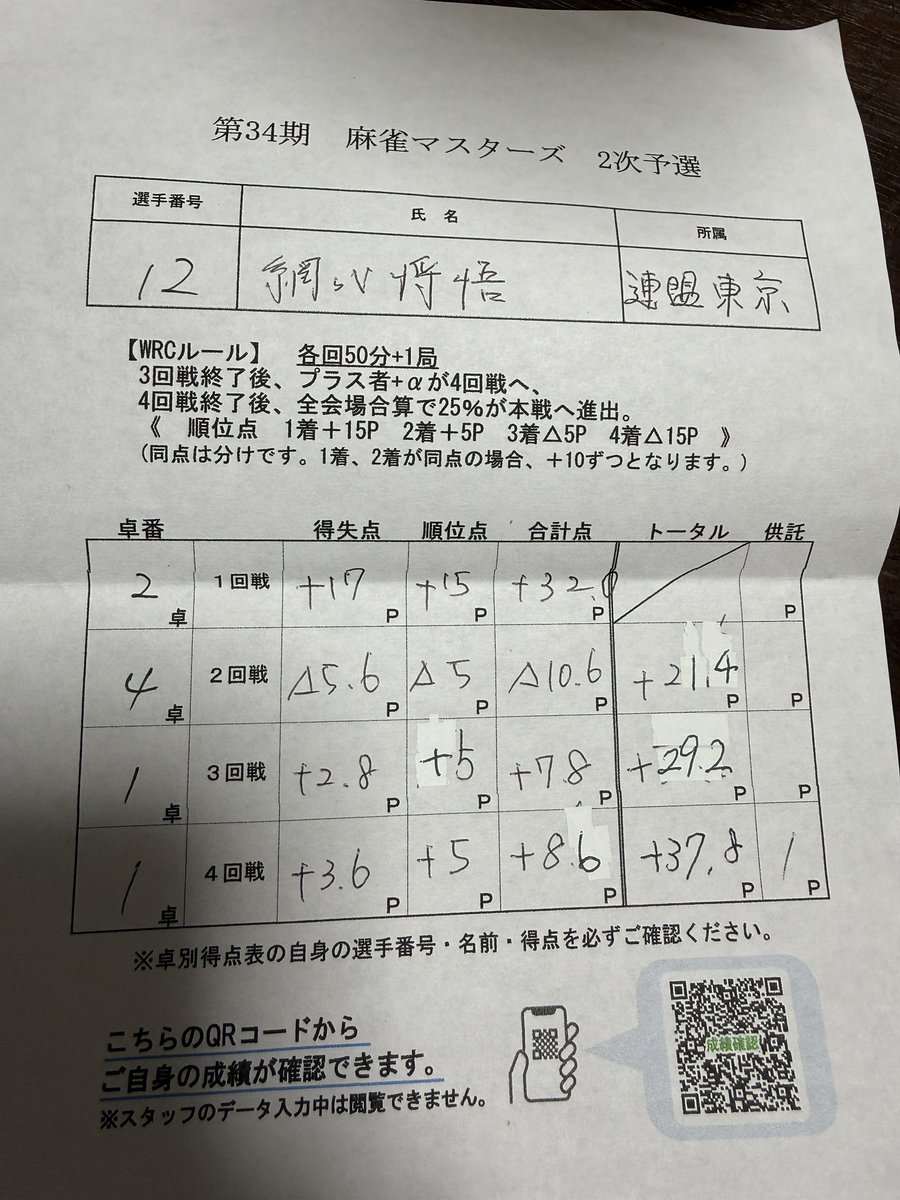 第34期 麻雀マスターズ 2次予選
選手番号 氏名 所属
12 網川将悟 連盟東京
【WRCルール】 各回50分+1局
3回戦終了後、プラス者+αが4回戦へ、
4回戦終了後、全会場合算で25%が本戦へ進出。
《 順位点 1着+15P 2着+5P 3着△5P 4着△15P 》
(同点は分けです。1着、2着が同点の場合、+10ずつとなります。)
卓番 得失点 順位点 合計点 トータル 供託
2卓 1回戦 +17P +15P +32.0P P
4卓 2回戦 △5.6P △5P △10.6P +21.4P P
1卓 3回戦 +2.8P +5P +7.8P +29.2P P
1卓 4回戦 +3.6P +5P +8.6P +37.8P 1P
※卓別得点表の自身の選手番号・名前・得点を必ずご確認ください。
こちらのQRコードから
ご自身の成績が確認できます。
※スタッフのデータ入力中は閲覧できません。
成績確認